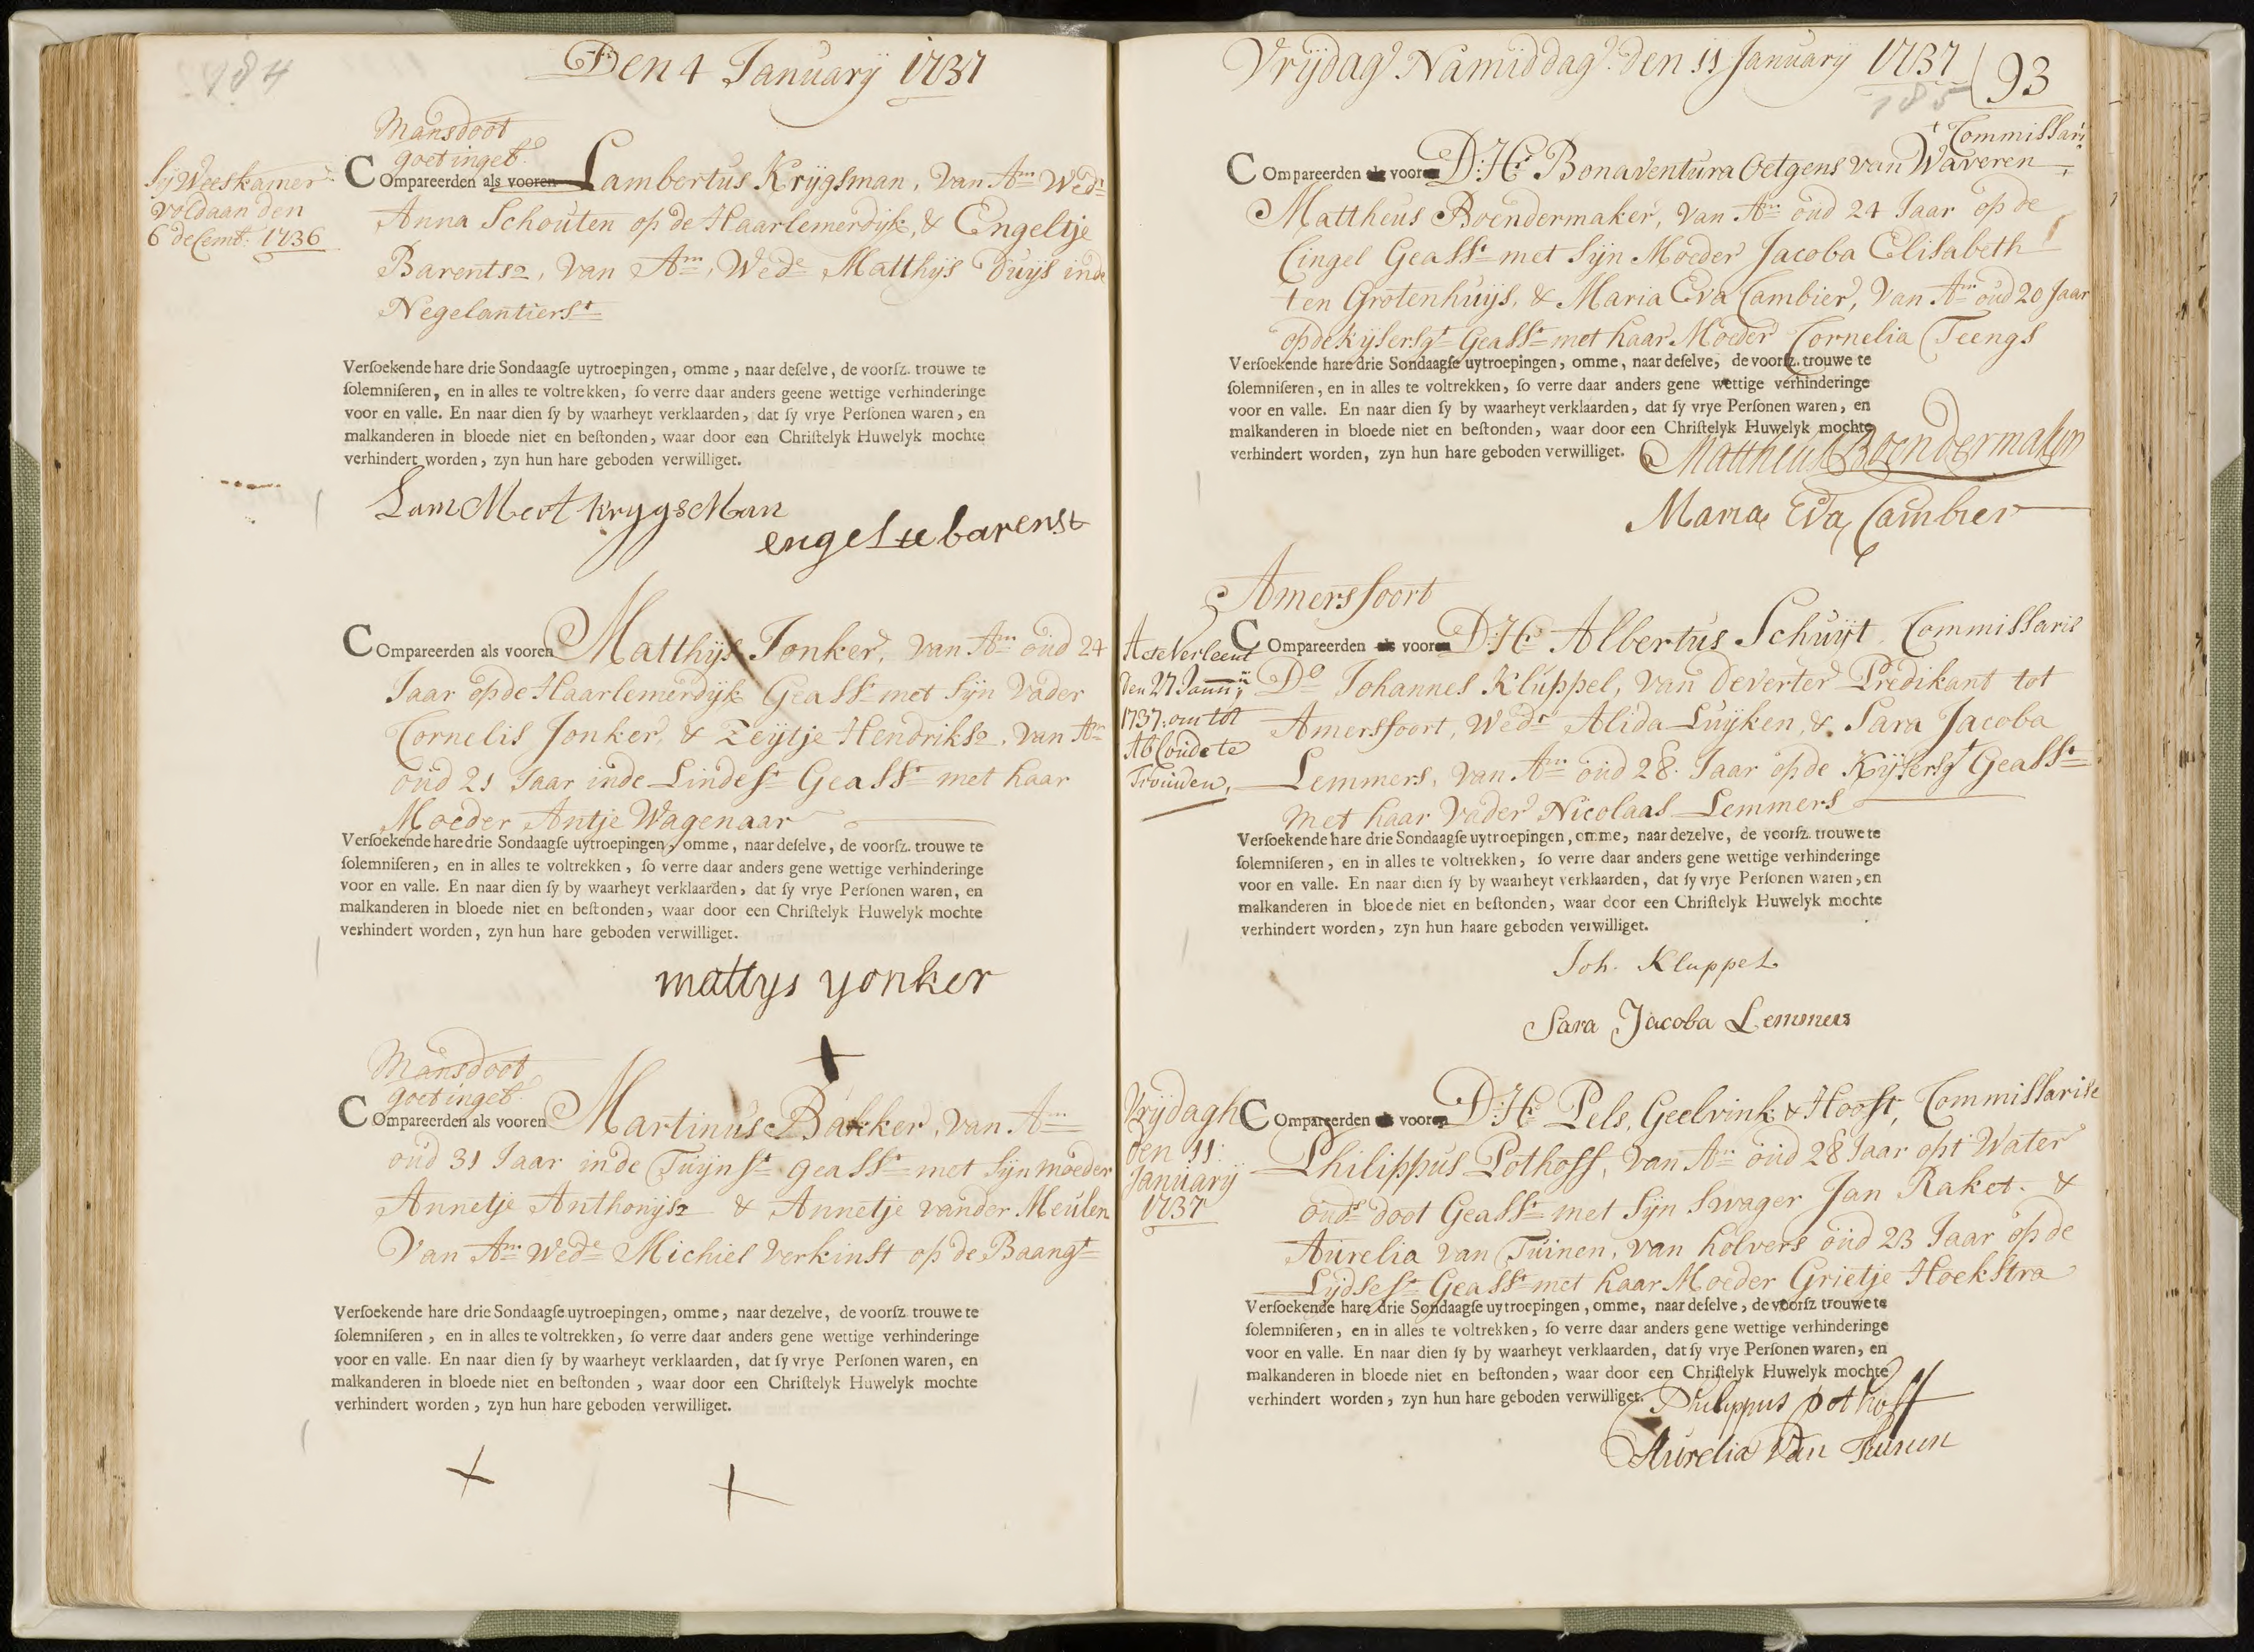 184
Den 4 January 1737
Mansdoot
goet ingeb.
Sij Weeskamer
voldaan den
6 decemb. 1736
COmpareerden als vooren Lambertus Krijgsman, van Am Wedr
Anna Schouten op de Haarlemerdijk, & Engeltje
Barents, van Am, Wede Matthijs Duijs inde
Negelantierst
Versoekende hare drie Sondaagse uytroepingen, omme, naar deselve, de voorsz. trouwe te
solemniseren, en in alles te voltrekken, so verre daar anders geene wettige verhinderinge
voor en valle. En naar dien sy by waarheyt verklaarden, dat sy vrye Personen waren, en
malkanderen in bloede niet en bestonden, waar door een Christelyk Huwelyk mochte
verhindert worden, zyn hun hare geboden verwilliget.
LamMert krygsMan
engeltie barenst
COmpareerden als vooren Matthijs Jonker, van Am oud 24
Jaar op de Haarlemerdijk Geasst met sijn Vader
Cornelis Jonker, & Zeijtje Hendriks, van Am
oud 21 Jaar inde Lindest Geasst met haar
Moeder Antje Wagenaar
Versoekende hare drie Sondaagse uytroepingen, omme, naar deselve, de voorsz. trouwe te
solemniseren, en in alles te voltrekken, so verre daar anders gene wettige verhinderinge
voor en valle. En naar dien sy by waarheyt verklaarden, dat sy vrye Personen waren, en
malkanderen in bloede niet en bestonden, waar door een Christelyk Huwelyk mochte
verhindert worden, zyn hun hare geboden verwilliget.
mattys yonker
Mansdoot
goet ingeb.
COmpareerden als vooren Martinus Bakker, van Am
oud 31 Jaar inde Tuijnst geasst met sijn moeder
Annetje Anthonijs & Annetje vander Meulen
Van Am Wede Michiel Verkinst op de Baangt
Versoekende hare drie Sondaagse uytroepingen, omme, naar dezelve, de voorsz. trouwe te
solemniseren, en in alles te voltrekken, so verre daar anders gene wettige verhinderinge
voor en valle. En naar dien sy by waarheyt verklaarden, dat sy vrye Personen waren, en
malkanderen in bloede niet en bestonden, waar door een Christelyk Huwelyk mochte
verhindert worden, zyn hun hare geboden verwilliget.
Vrijdag Namiddag den 11 January 1737
93
185
Commissaris
COmpareerden voor D: Hr Bonaventura Oetgens van Waveren
Mattheus Boendermaker, van Am oud 24 Jaar op de
Cingel Geasst met Sijn Moeder Jacoba Elisabeth
ten Grotenhuijs, & Maria Eva Cambier, van Am oud 20 Jaar
op de Kijsersgt Geasst met haar Moeder Cornelia Teengs
Versoekende hare drie Sondaagse uytroepingen, omme, naar deselve, de voorsz. trouwe te
solemniseren, en in alles te voltrekken, so verre daar anders gene wettige verhinderinge
voor en valle. En naar dien sy by waarheyt verklaarden, dat sy vrye Personen waren, en
malkanderen in bloede niet en bestonden, waar door een Christelyk Huwelyk mochte
verhindert worden, zyn hun hare geboden verwilliget.
Mattheus Boendermaker
Maria Eva Cambier
Amersfoort
Acte Verleent
den 27 January
1737. om tot
Abcoude te
Trouwen.
COmpareerden voor D: Hr Albertus Schuijt Commissaris
Do Johannes Kluppel, van Deverter Predikant tot
Amersfoort, Wedr Alida Luijken, & Sara Jacoba
Lemmers, van Am oud 28 Jaar op de Kijsersgt Geasst
met haar Vader Nicolaas Lemmers
Versoekende hare drie Sondaagse uytroepingen, omme, naar dezelve, de voorsz. trouwe te
solemniseren, en in alles te voltrekken, so verre daar anders gene wettige verhinderinge
voor en valle. En naar dien sy by waarheyt verklaarden, dat sy vrye Personen waren, en
malkanderen in bloede niet en bestonden, waar door een Christelyk Huwelyk mochte
verhindert worden, zyn hun haare geboden verwilliget.
Joh. Kluppel
Sara Jacoba Lemmers
Vrijdagh
den 11
January
1737
COmpareerden voor D: Hr Pels, Geelvink & Hooft, Commissarise
Philippus Pothoff, van Am oud 28 Jaar opt Water
ouds doot Geasst met Sijn Swager Jan Raket &
Aurelia van Tuinen, van holvers oud 23 Jaar op de
Lijdsest Geasst met haar Moeder Grietje Hoekstra
Versoekende hare drie Sondaagse uytroepingen, omme, naar deselve, de voorsz trouwe te
solemniseren, en in alles te voltrekken, so verre daar anders gene wettige verhinderinge
voor en valle. En naar dien sy by waarheyt verklaarden, dat sy vrye Personen waren, en
malkanderen in bloede niet en bestonden, waar door een Christelyk Huwelyk mochte
verhindert worden, zyn hun hare geboden verwilliget.
Philippus pothoff
Aurelia van Tuinen